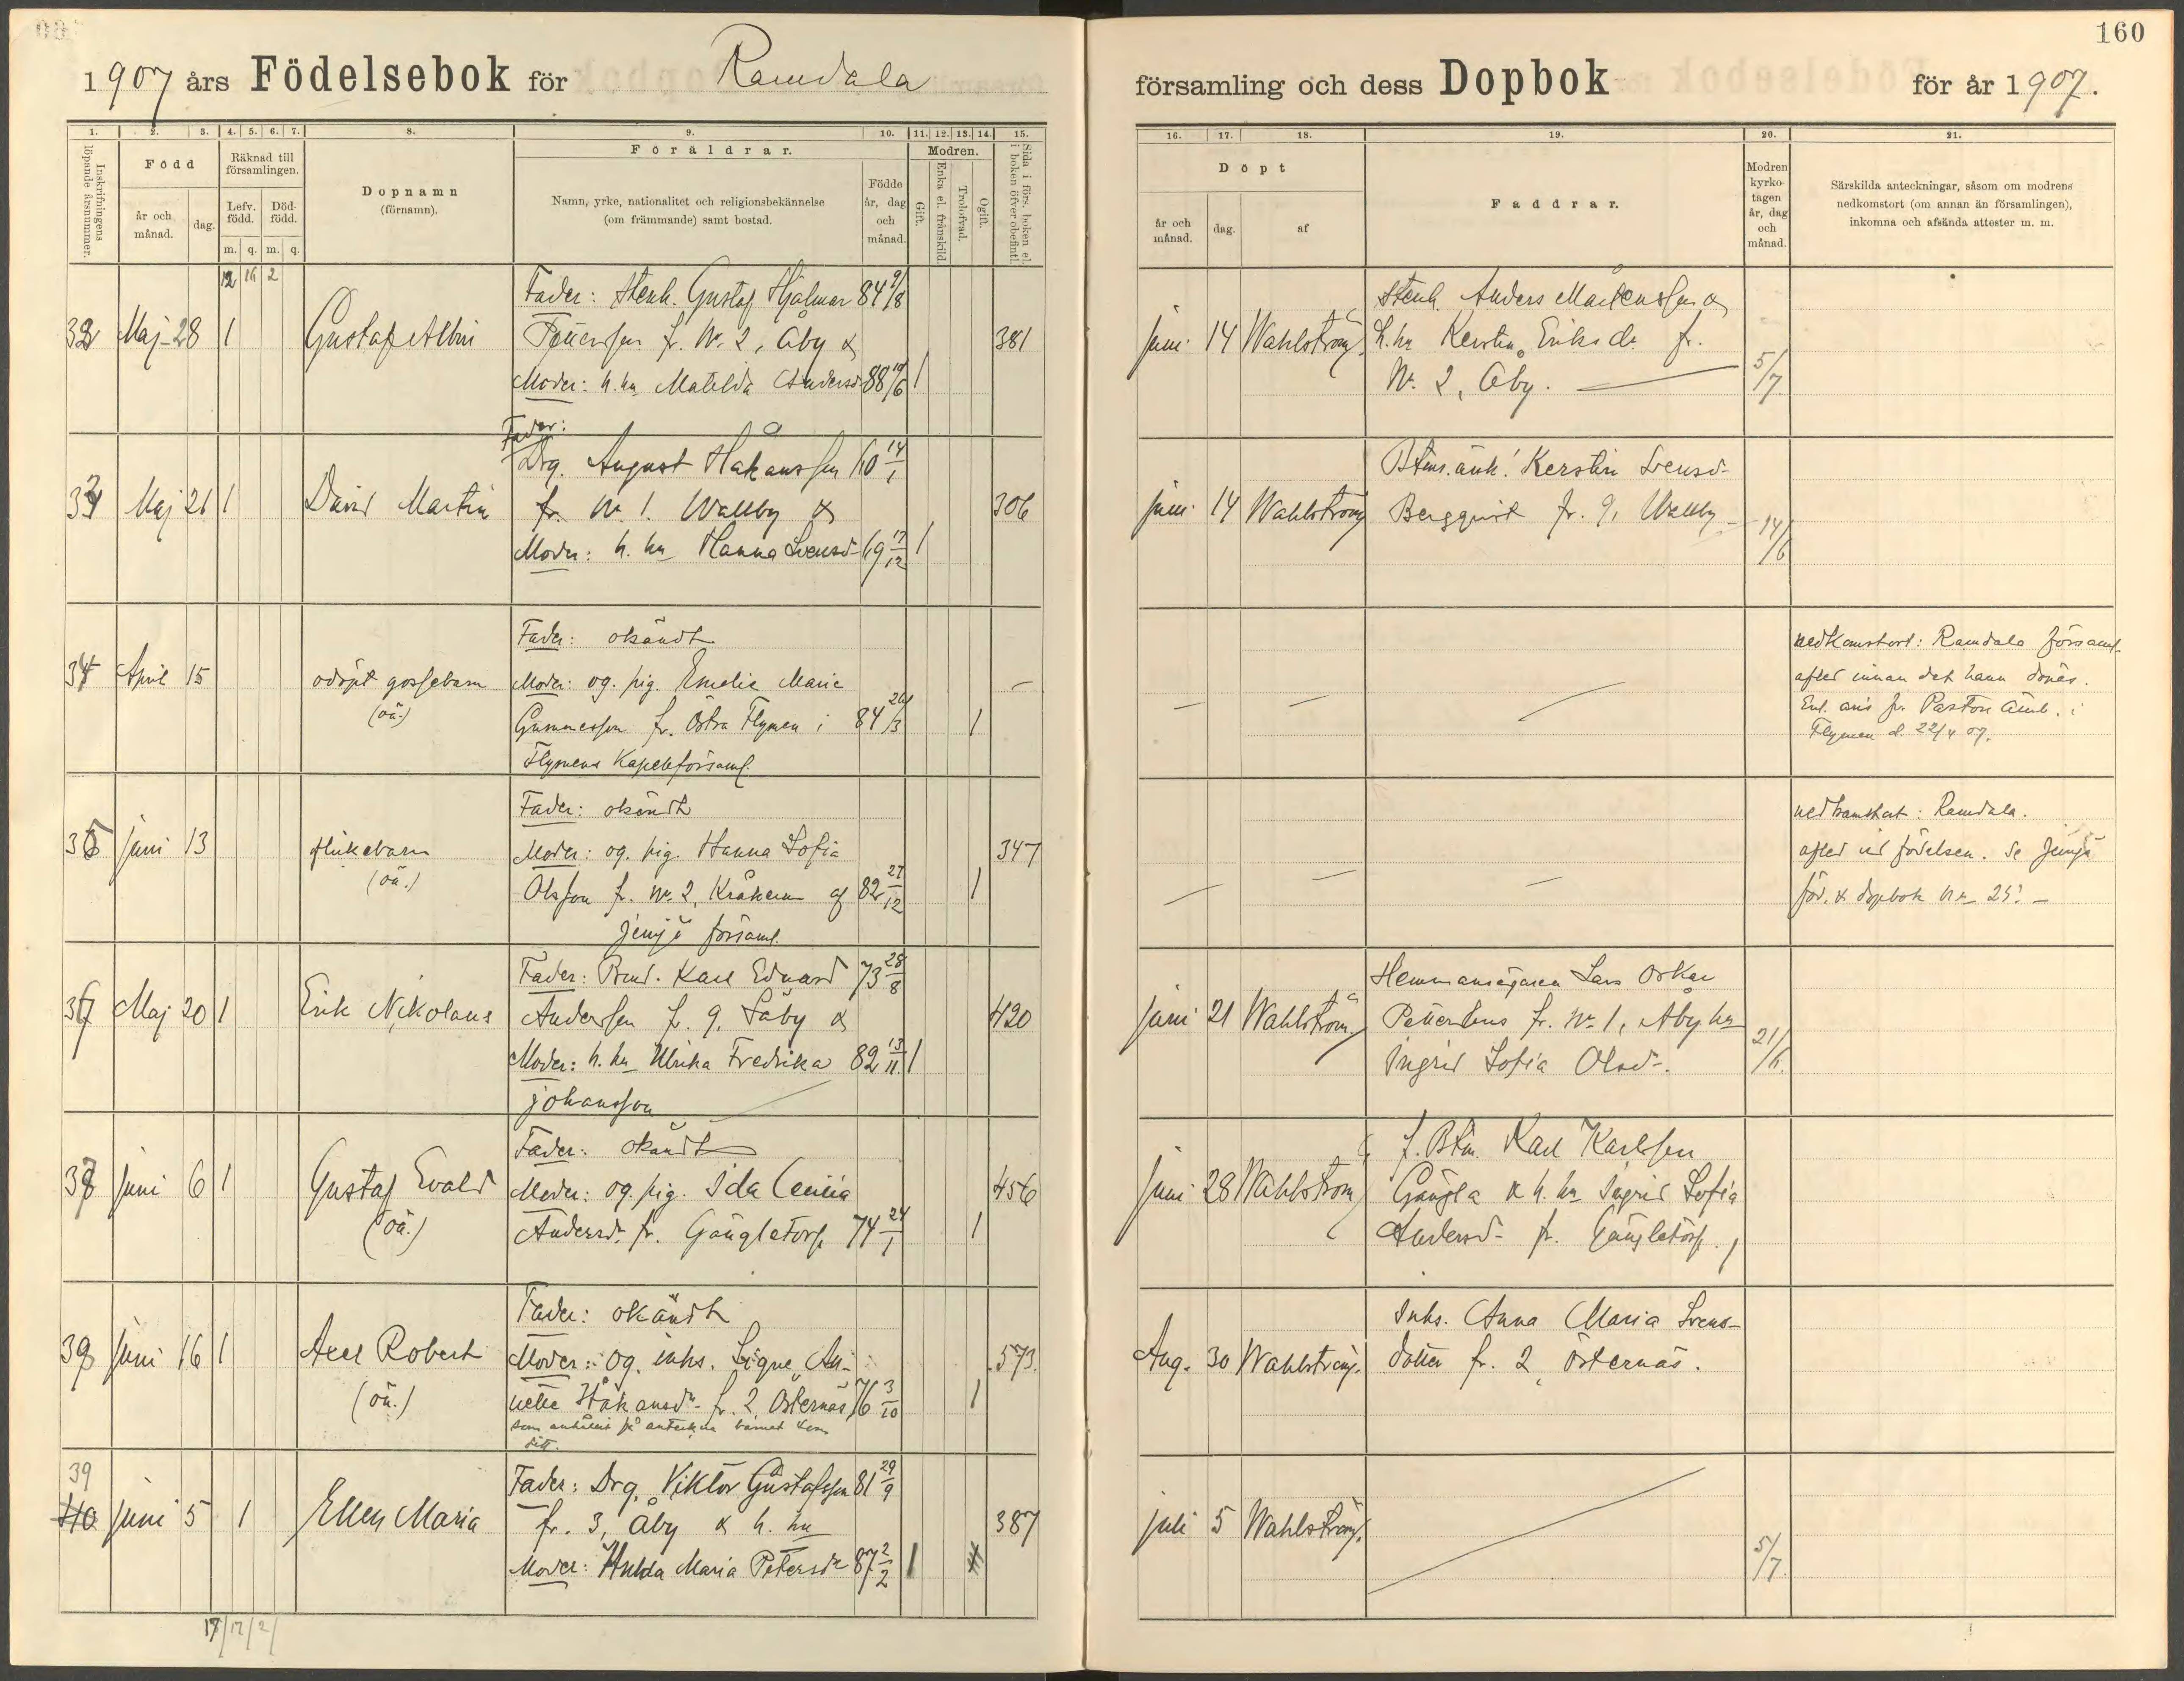 1907 års Födelsebok för Ramdala
1.
2.
3.
4.
5.
6.
7.
8.
9.
10.
11.
12.
13.
14.
15.
Inskrifningens löpande årsnummer.
Född
år och månad.
dag.
Räknad till församlingen.
Lefv. född.
Död-född.
m.
q.
m.
q.
Dopnamn
(förnamn).
Föräldrar.
Namn, yrke, nationalitet och religionsbekännelse
(om främmande) samt bostad.
Födde
år, dag
och
månad.
Modren.
Gift.
Enka el. frånskild.
Trolofvad.
Ogift.
Sida i förs. boken el. i boken öfver obefintl.
12 16 2
Fader: Stenh. Gustaf Hjalmar 84 9/8
32 Maj 28 1 Gustaf Albin fr. Nr. 2, Åby & 381
Moder: h. hu Matilda Andersd 88 1
Fader:
Drg. August Håkansson 60 14/1
33 Maj 21 1 David Martin fr. Nr. 1. Wallby & 306
Moder: h. hu Hanna Svensd 69 17/12 1
Fader: okändt
34 April 15 odöpt gossebarn Moder: og. pig. Emelie Marie —
(oä.) Gummesson fr. Östra Flymen i 84 26/3 1
Flymens Kapellförsaml.
Fader: okändt
35 juni 13 flickebarn Moder: og. pig. Hanna Sofia 347
(oä.) Olsson fr. Nr. 2, Kråkerum af 82 27/12 1
Jemjö församl.
Fader: Karl Eduard 73 28/8
36 Maj 20 1 Erik Nikolaus Andersson fr. 9, Säby & 420
Moder: h. hu Ulrika Fredrika 82 13/11 1
Johansson
Fader: okändt
37 juni 6 1 Gustaf Evald Moder: og. pig. Ida Cecilia 456
(oä.) Andersd. fr. Gängletorp 74 24/1 1
Fader: okändt
38 juni 16 1 Axel Robert Moder: og. inhs. Signe An- 573
(oä.) nette Håkansd. fr. 2, Östernäs 76 3/10 1
som anhållit få anteckna barnet som
sitt.
39 Fader: Drg. Viktor Gustafsson 81 29/9
40 juni 5 1 Ellen Maria fr. 3, Åby & h. hu 387
Moder: Hulda Maria Petersdr 87 2/2 1
17/17/2/
160
församling och dess Dopbok för år 1907.
16.
17.
18.
19.
20.
21.
Döpt
år och månad.
dag.
af
Faddrar.
Modren
kyrko-
tagen
år, dag
och
månad.
Särskilda anteckningar, såsom om modrens
nedkomstort (om annan än församlingen),
inkomna och afsända attester m. m.
Stenh. Anders Mårtensson &
juni 14 Wahlström. h. hu Kerstin Eriksdr. fr.
Nr. 2, Åby. — 5/7
Btsm. änk. Kerstin Svensd-
juni 14 Wahlström Bergquist fr. 9, Wallby — 14/6
nedkomstort: Ramdala församl.
afled innan det hann döpas.
— — — Enl. avis fr. Pastors Ämb. i
Flymen d. 22/4 07.
nedkomstort: Ramdala.
afled vid födelsen. Se Jemjö
— — — föd. & dopbok Nr. 25. —
Hemmansägaren Lars Oskar
juni 21 Wahlström. fr. Nr. 1, Åby hu
Ingrid Sofia Olsd-. 21/6
f. Btsm. Karl Karlsson
juni 28 Wahlström Gängla & h. hu Ingrid Sofia
Andersd- fr. Gängletorp.
Inhs. Anna Maria Svens-
Aug. 30 Wahlström. dotter fr. 2, Östernäs.
juli 5 Wahlström. 5/7